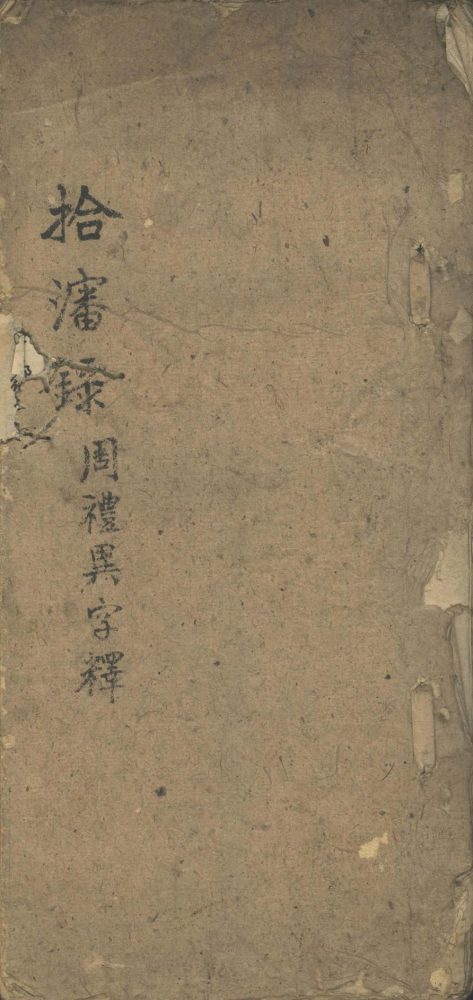 拾瀋録
周禮異字釋